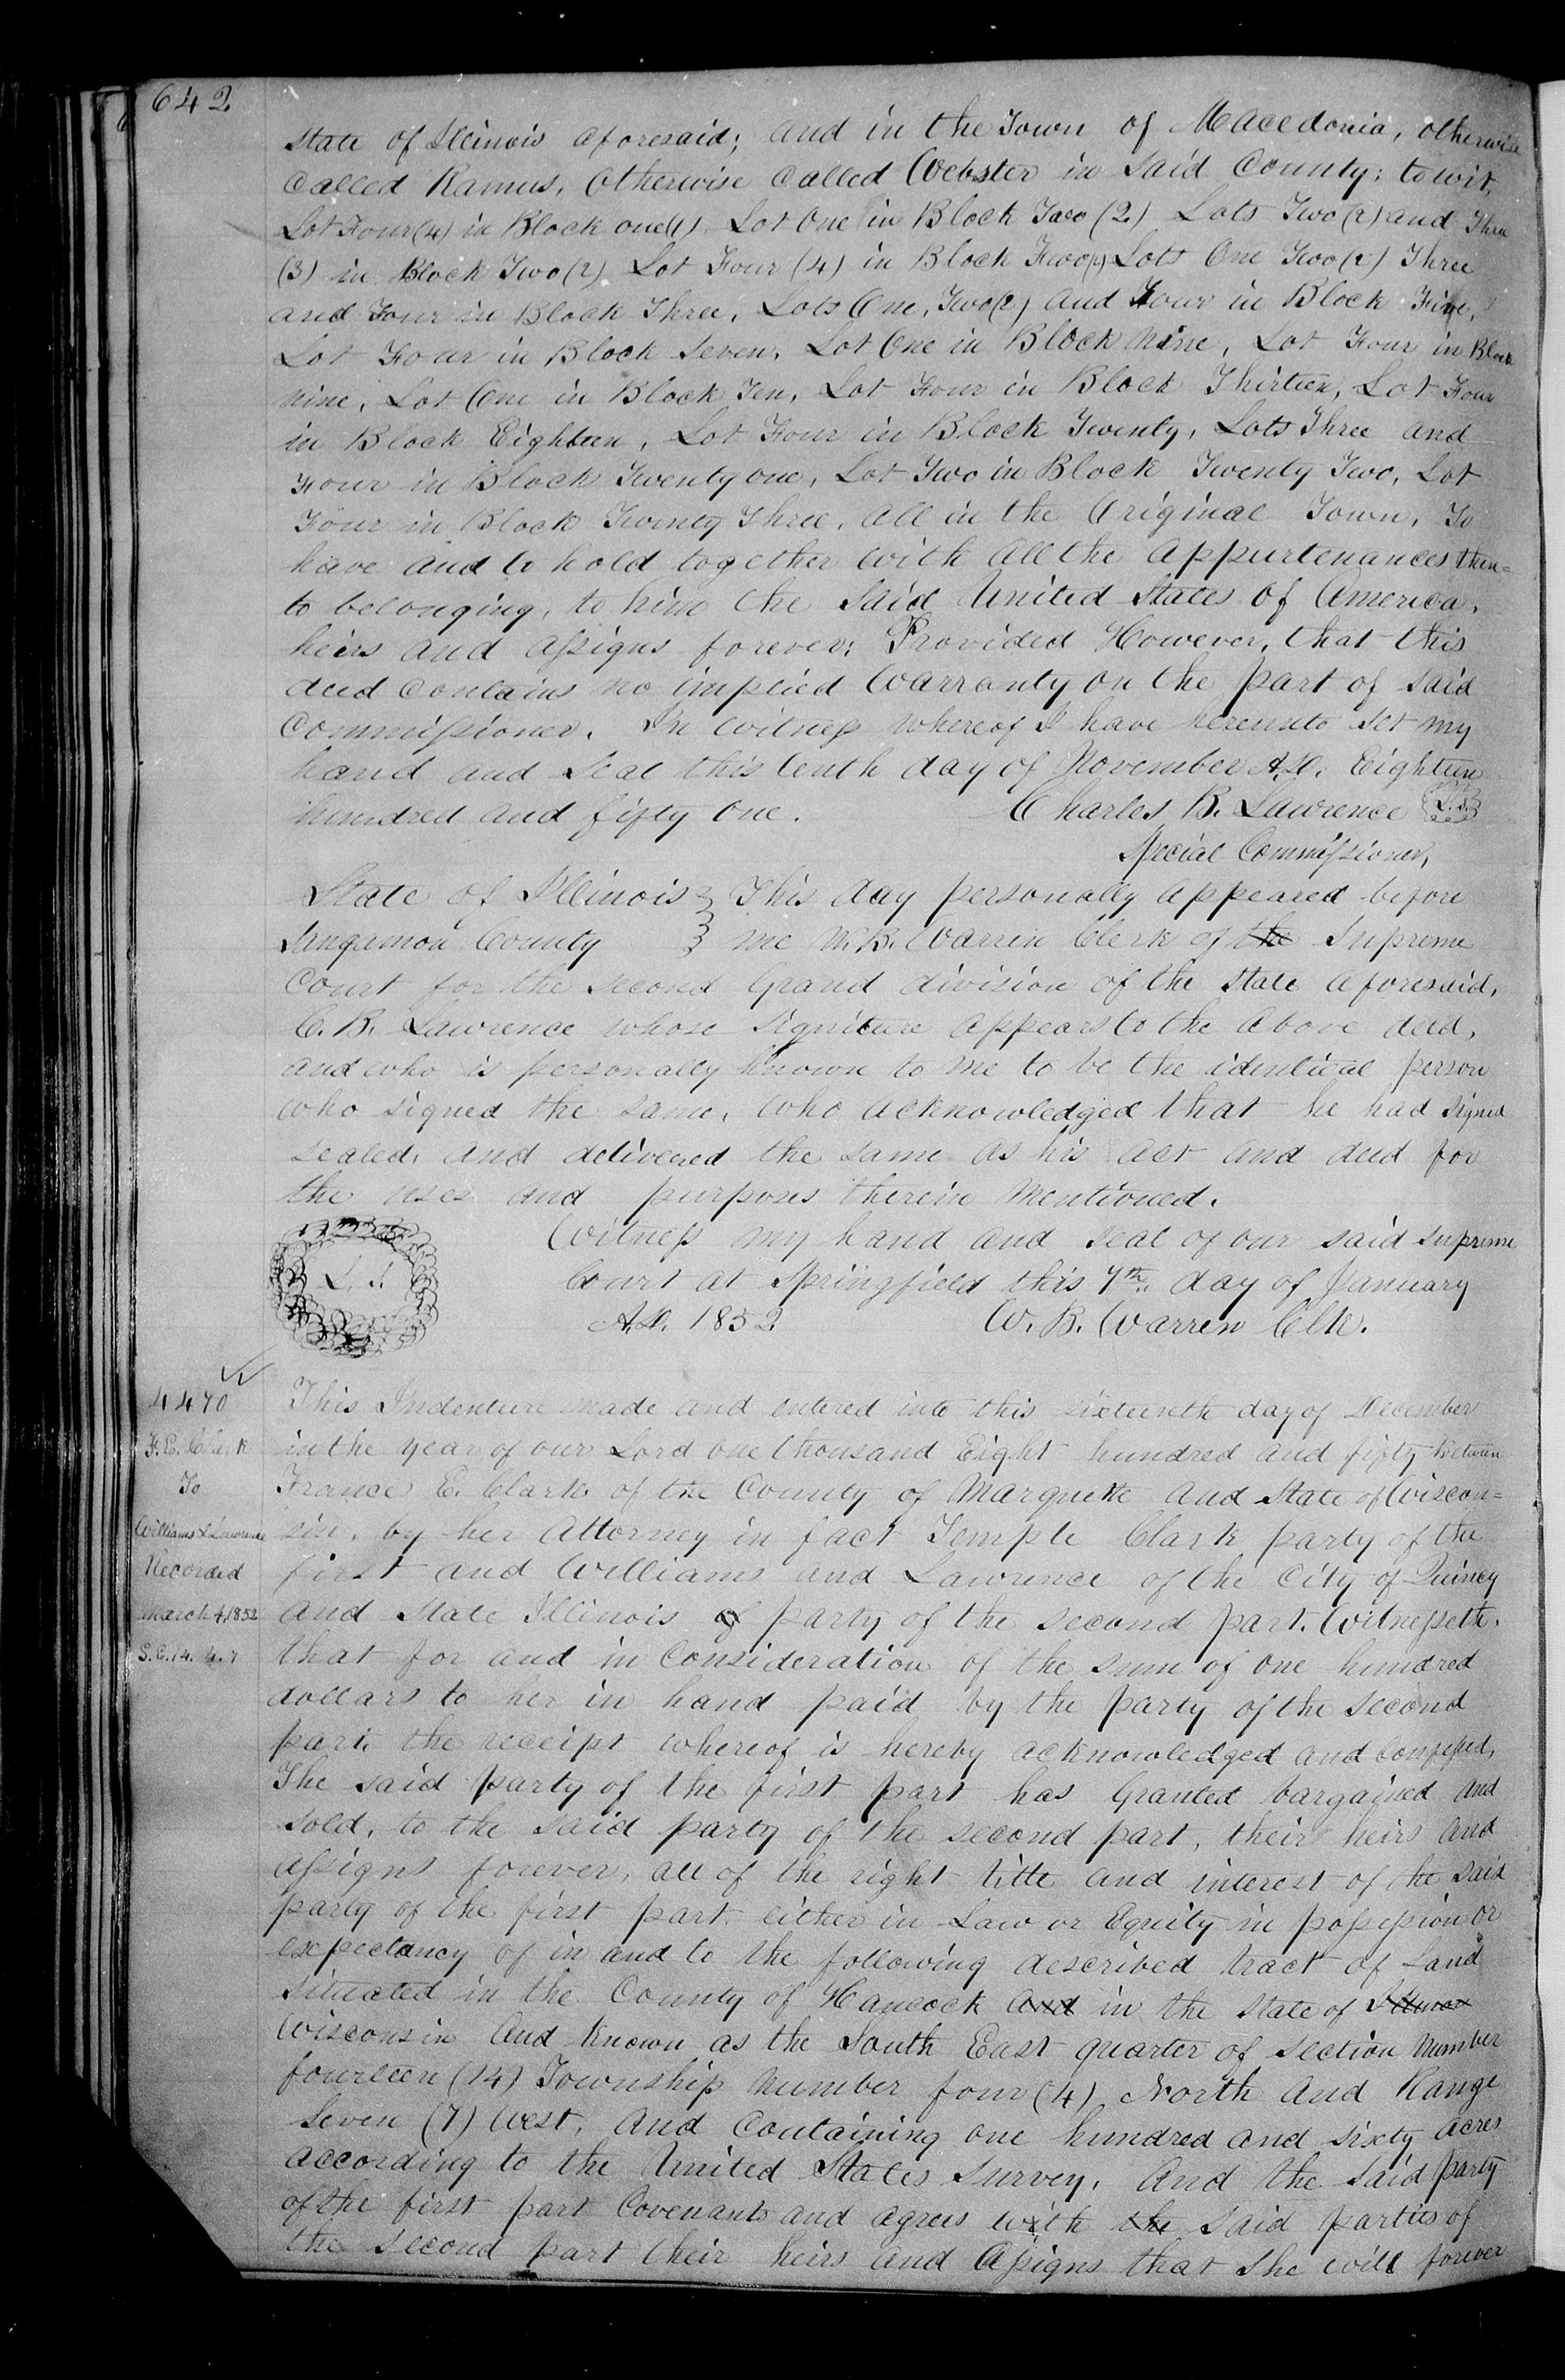 642
State of Illinois aforesaid; and in the Town of Macedonia, otherwise
Called Ramus, Otherwise Called Webster in said County; to wit,
Lot Four (4) in Block one (1) Lot One in Block Two (2) Lots Two (2) and Three
(3) in Block Two (2) Lot Four (4) in Block Two (2) Lots One Two (2) Three
and Four in Block Three, Lots One, Two (2) and Four in Block Five,
Lot Four in Block Seven, Lot One in Block Nine, Lot Four in Block
nine, Lot One in Block Ten, Lot Four in Block Thirteen, Lot Four
in Block Eighteen, Lot Four in Block Twenty, Lots Three and
Four in Block Twenty one, Lot Two in Block Twenty Two, Lot
Four in Block Twenty Three, All in the Original Town, To
have and to hold together with all the appurtenances there=
to belonging, to him the said United States of America,
heirs and assigns forever; Provided However, that this
deed contains no implied Warranty on the part of said
Commissioner. In witness whereof I have hereunto set my
hand and seal this tenth day of November A.D. Eighteen
hundred and fifty one. Charles B. Lawrence L.S.
Special Commissioner,
State of Illinois } This day personally appeared before
Sangamon County } me W.B. Warren Clerk of the Supreme
Court for the second Grand division of the State aforesaid,
C.B. Lawrence whose signiture appears to the above deed,
and who is personally known to me to be the identical person
who signed the same, who acknowledged that he had signed
sealed, and delivered the same as his act and deed for
the uses and purposes therein mentioned.
Witness my hand and seal of our said Supreme
L.S. Court at Springfield this 7th. day of January
A.D. 1852 W.B. Warren Clk.
4470
F.E. Clark
To
Williams & Lawrence
Recorded
March 4, 1852
S.E. 14. 4. 7
This Indenture made and entered into this sixteenth day of December
in the year of our Lord one thousand Eight hundred and fifty between
Frances E. Clark of the County of Marquette and State of Wiscon=
sin, by her Attorney in fact Temple Clark party of the
first and Williams and Lawrence of the City of Quincy
and State Illinois of party of the second part. Witnesseth.
that for and in Consideration of the sum of one hundred
dollars to her in hand paid by the party of the second
part, the receipt whereof is hereby acknowledged and confessed,
The said party of the first part has Granted bargained and
sold, to the said party of the second part, their heirs and
assigns forever, all of the right title and interest of the said
party of the first part either in Law or Equity in possession or
expectancy of in and to the following described tract of Land
situated in the County of Hancock and in the State of Illinois
Wisconsin and known as the South East quarter of section Number
fourteen (14) Township Number four (4) North and Range
Seven (7) West, and Containing one hundred and sixty acres
according to the United States survey, And the said party
of the first part Covenants and agrees with the said parties of
the second part their heirs and assigns that she will forever